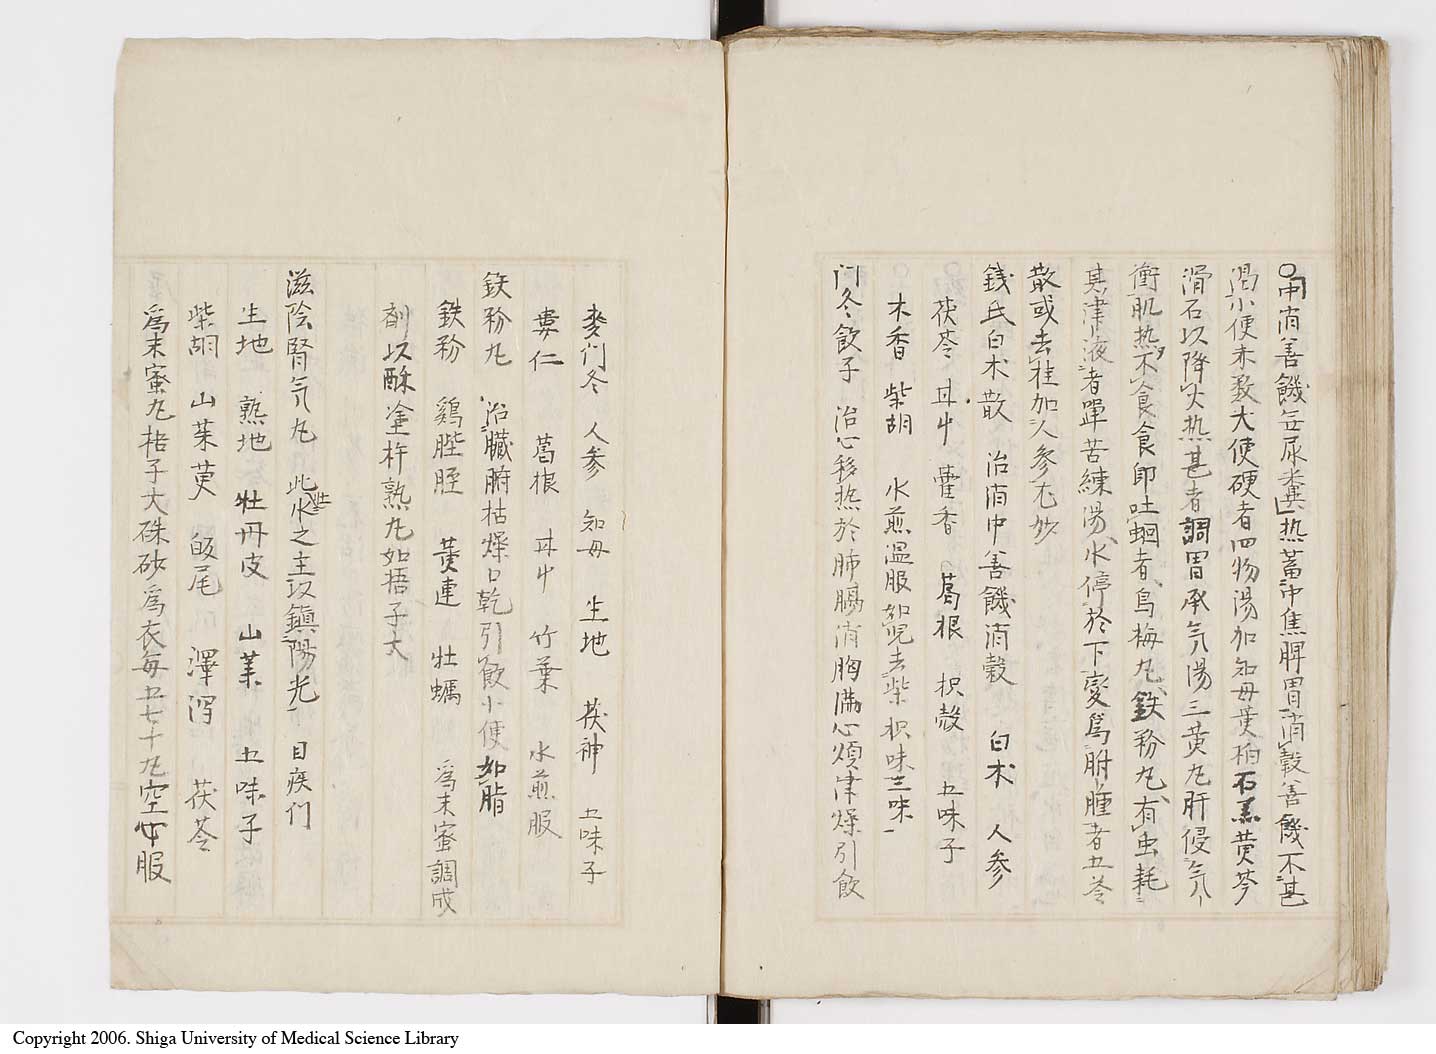 ○中消善饑無尿糞熱蓄中焦脾胃消穀善饑不甚
渇小便赤数大便硬者四物湯加知母黄柏石羔黄芩
滑石以降火热甚者調胃承气湯三黄丸肝侵气
衝肌热不食食即吐蛔者烏梅丸鉄粉丸有虫耗
其津液者單苦練湯水停於下変為胕腫者五苓
散或去桂加人参尤妙
銭氏白术散 治消中善饑消穀 白术 人参
茯苓 甘艸 藿香 葛根 枳殻 五味子
木香 柴胡 水煎温服如児去柴枳味三味
门冬飲子 治心移热於肺膈消胸満心煩津燥引飲
麦们冬 人参 知母 生地 茯神 五味子
蔞仁 葛根 甘艸 竹葉 水煎服
鉄粉丸 治臓腑枯燥口乾引飲小便如脂
鉄粉 鶏䏶胵 黄連 牡蠣 為末蜜調成
剤以酥塗杵熟丸如梧子大
滋陰腎气丸 此壮水之主以鎮陽光 目疾们
生地 熟地 牡丹皮 山茱 五味子
柴胡 山茱萸 皈尾 澤瀉 茯苓
為末蜜丸梧子大硃砂為衣每五七十丸空心服
Copyright 2006. Shiga University of Medical Science Library